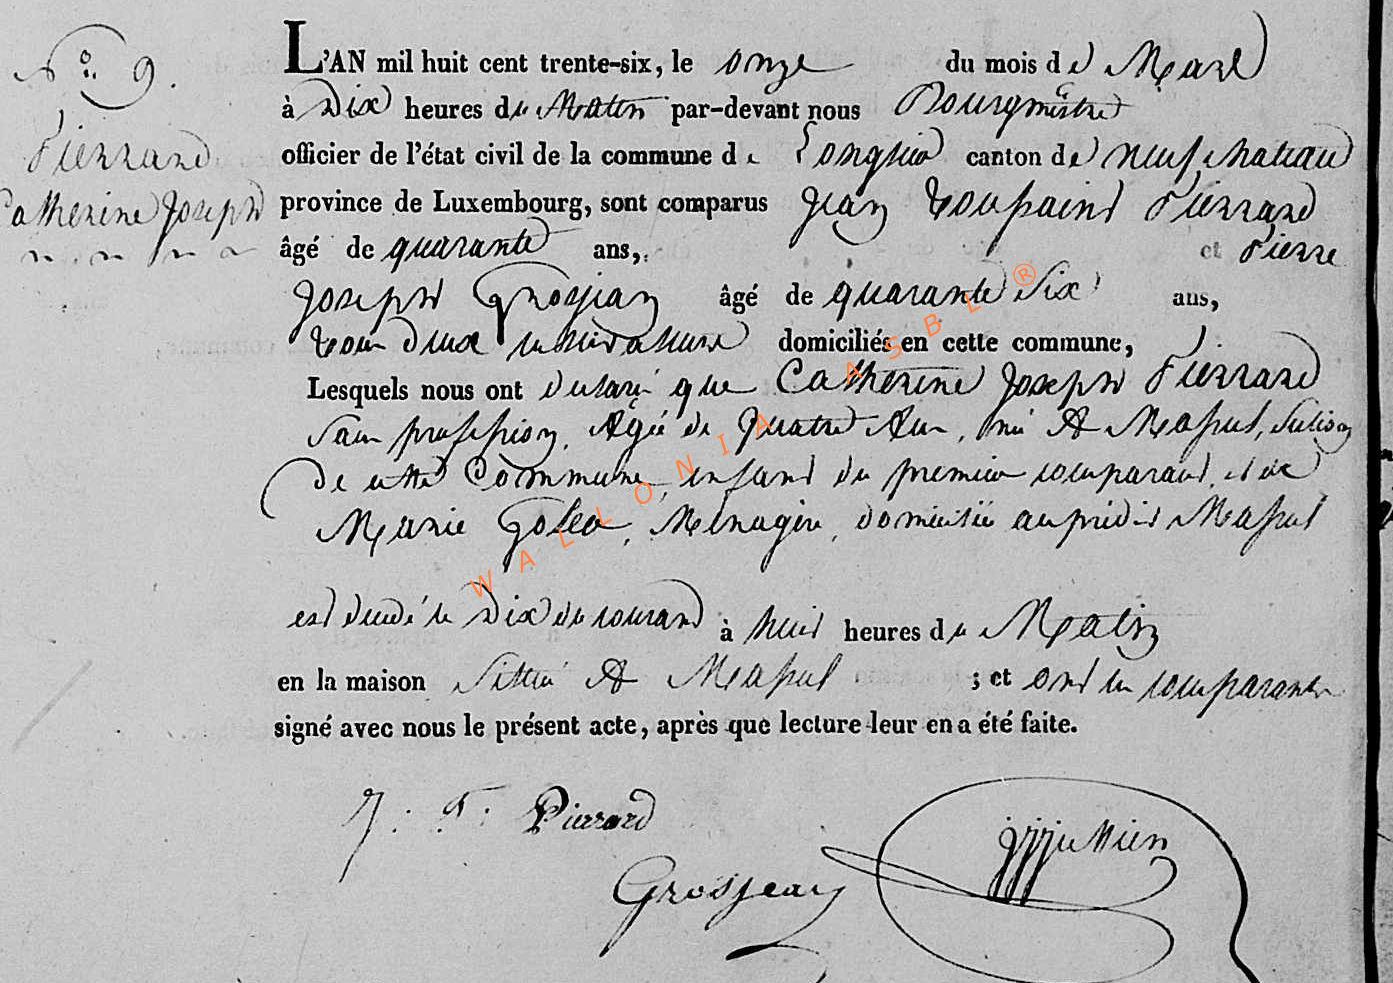 N.º 9.
Pierrard
Catherine Joseph
L'AN mil huit cent trente-six, le onze du mois de Mars
à Dix heures du Matin par-devant nous Bourgmestre
officier de l'état civil de la commune de Longlier canton de neufchateau
province de Luxembourg, sont comparus Jean toussaint Pierrard
âgé de quarante ans, et Pierre
Joseph Grosjean âgé de quarante Six ans,
tous deux domiciliés en cette commune,
Lesquels nous ont declaré que Catherine Joseph Pierrard
Sans profession, Agée de Quatre Ans, née A Massul, Section
de cette Commune, enfant du premier comparant, et de
Marie, Ménagère, domiciliée au prédit Massul
est décédé le Dix du courant à huit heures du Matin
en la maison Sittué A Massul ; et ont les comparants
signé avec nous le présent acte, après que lecture leur en a été faite.
J. T. Pierrard
Grosjean
WALLONIA ASBL ®